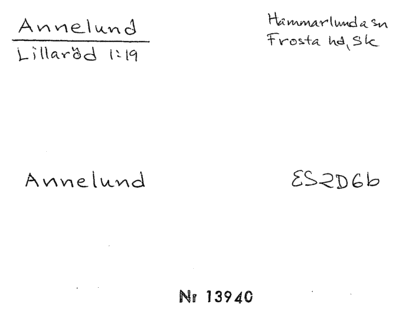 Annelund
Lillaröd 1:19
Hammarlunda sn
Frosta hd, Sk
Annelund
ES2D6b
Nr 13940